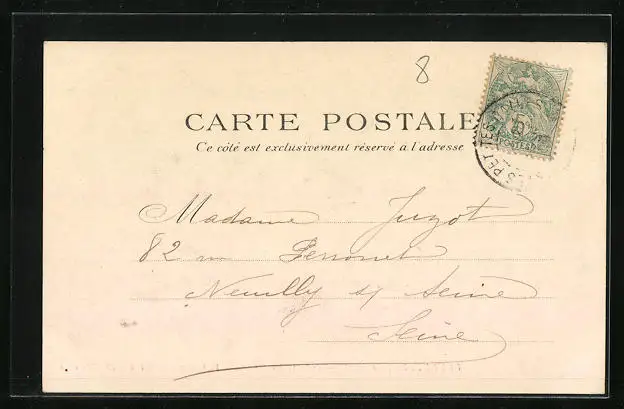 8
CARTE POSTALE
Ce côté est exclusivement réservé à l'adresse
Madame Juzot
82 r Perronet
Neuilly s/ Seine
Seine